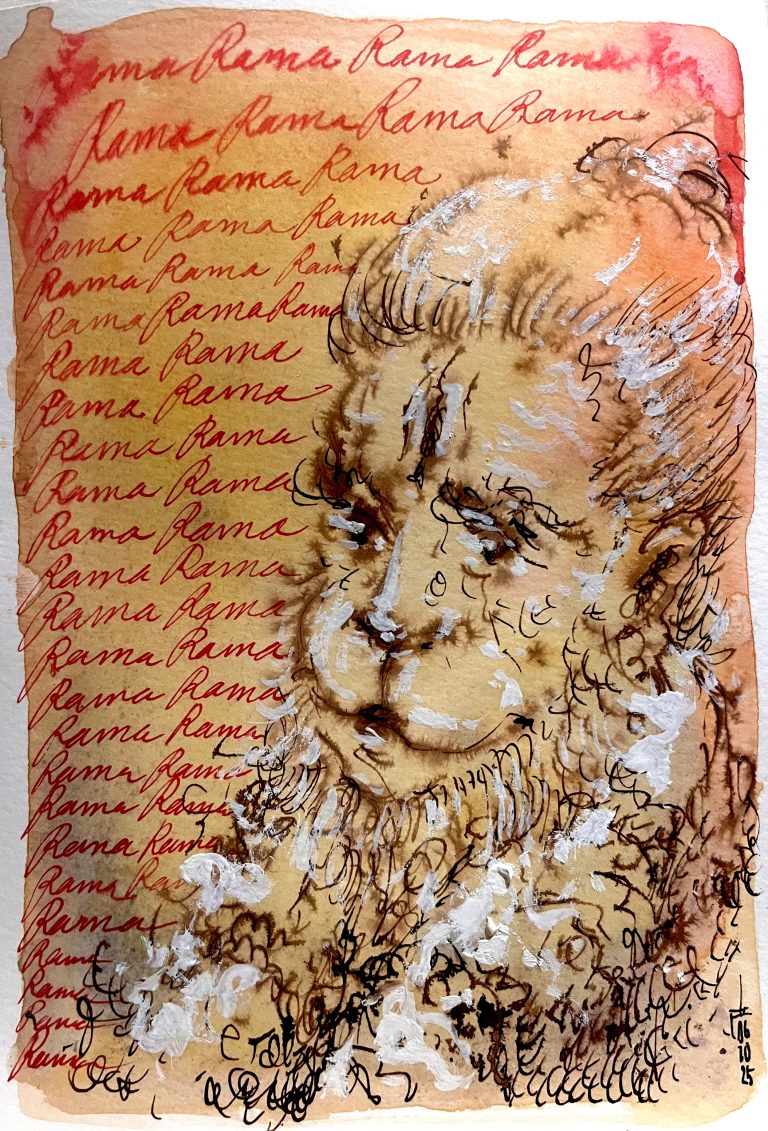 Rama Rama Rama Rama
Rama Rama Rama Rama
Rama Rama Rama
Rama Rama Rama
Rama Rama Rama
Rama Rama Rama
Rama Rama
Rama Rama
Rama Rama
Rama Rama
Rama Rama
Rama Rama
Rama Rama
Rama Rama
Rama Rama
Rama Rama
Rama Rama
Rama Rama
Rama Rama
Rama Ram
Rama
Rama
Rama
Rama
Rama
16
10
25